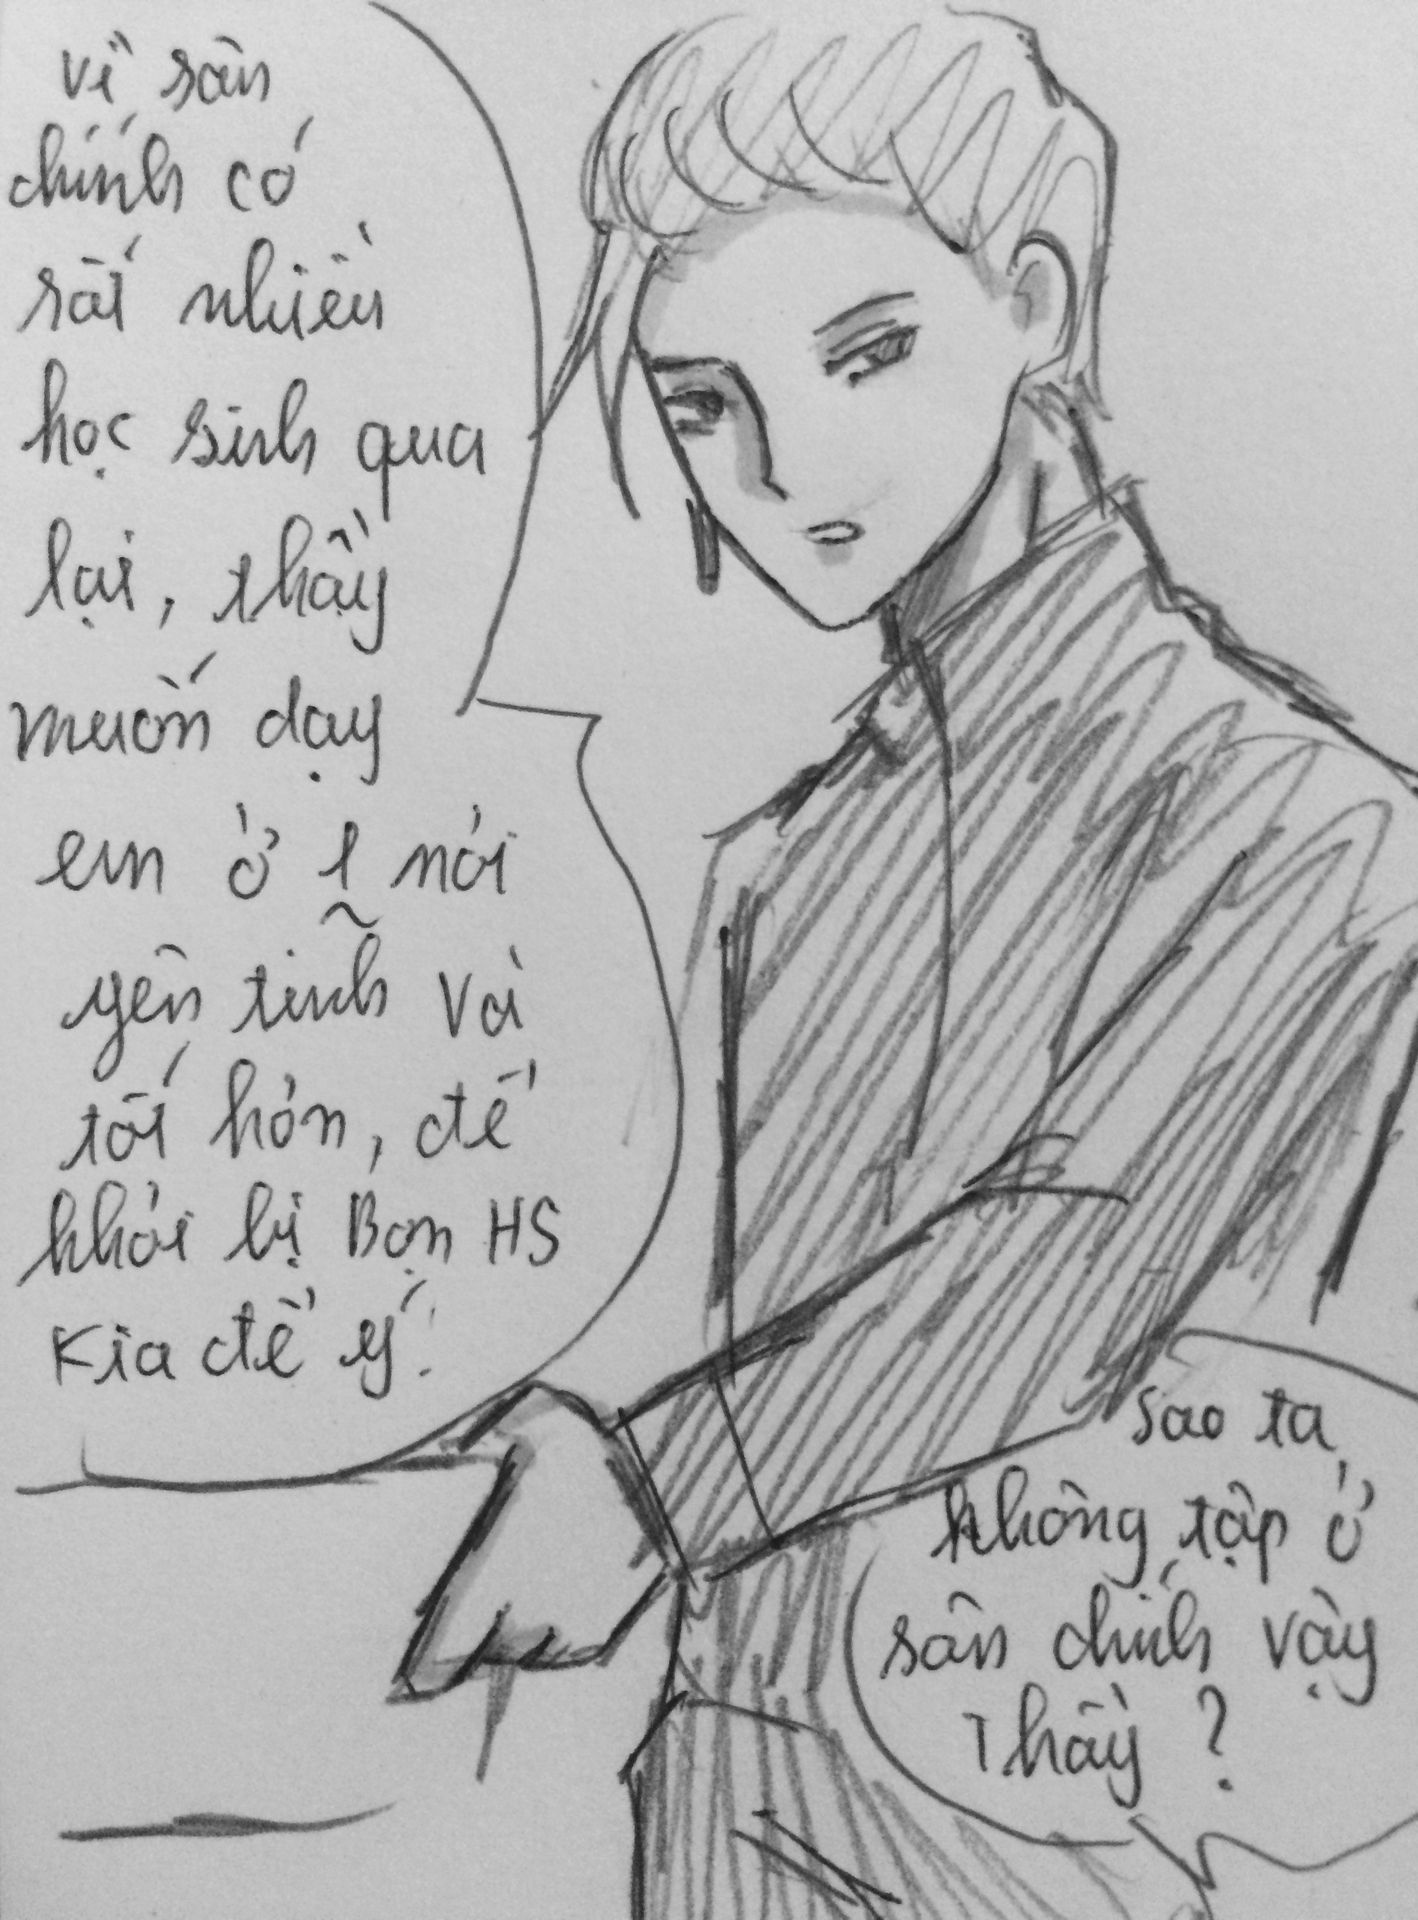 vì sân
chính có
rất nhiều
học sinh qua
lại, thầy
muốn dạy
em ở 1 nơi
yên tĩnh và
tốt hơn, để
khỏi bị Bọn HS
Kia để ý.
Sao ta
không tập ở
sân chính vậy
Thầy?